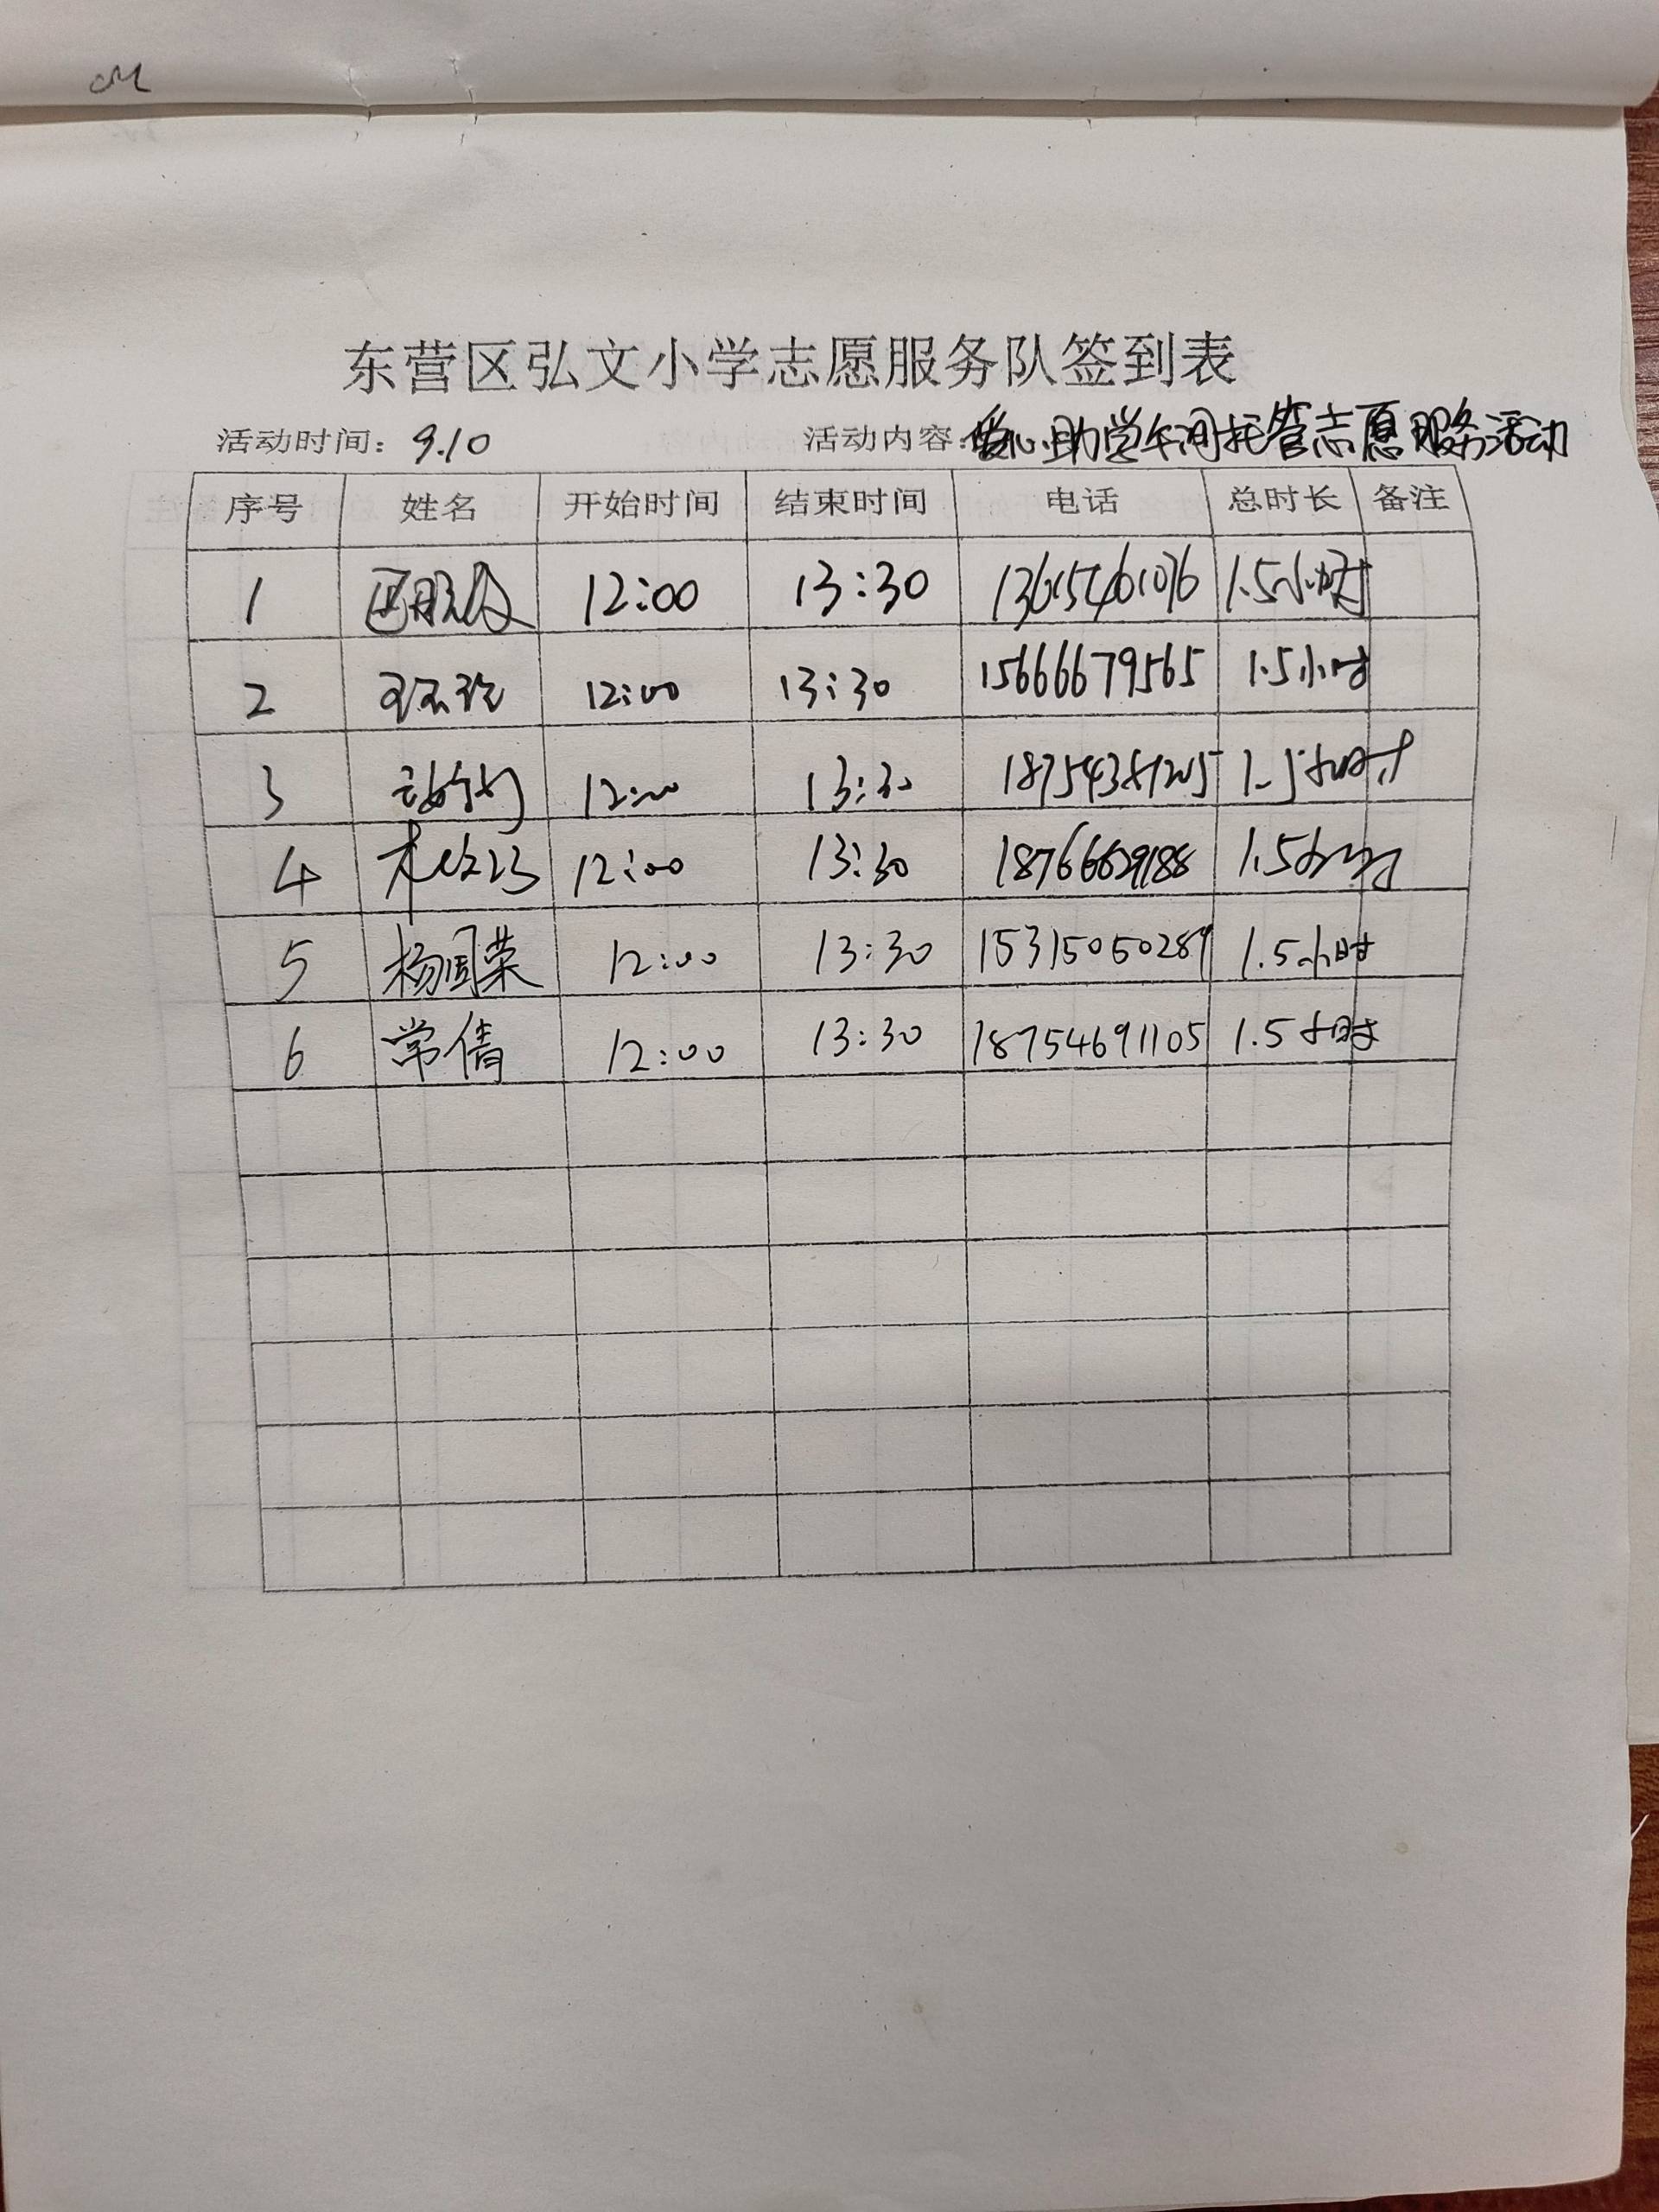 东营区弘文小学志愿服务队签到表
活动时间：9.10 活动内容：爱心助学午间托管志愿服务活动
序号 姓名 开始时间 结束时间 电话 总时长 备注
1 12:00 13:30 13615461076 1.5小时
2 12:00 13:30 15666679565 1.5小时
3 12:00 13:30 1.5小时
4 12:00 13:30 18766629188 1.5小时
5 杨国荣 12:00 13:30 15315050289 1.5小时
6 常倩 12:00 13:30 18754691105 1.5小时